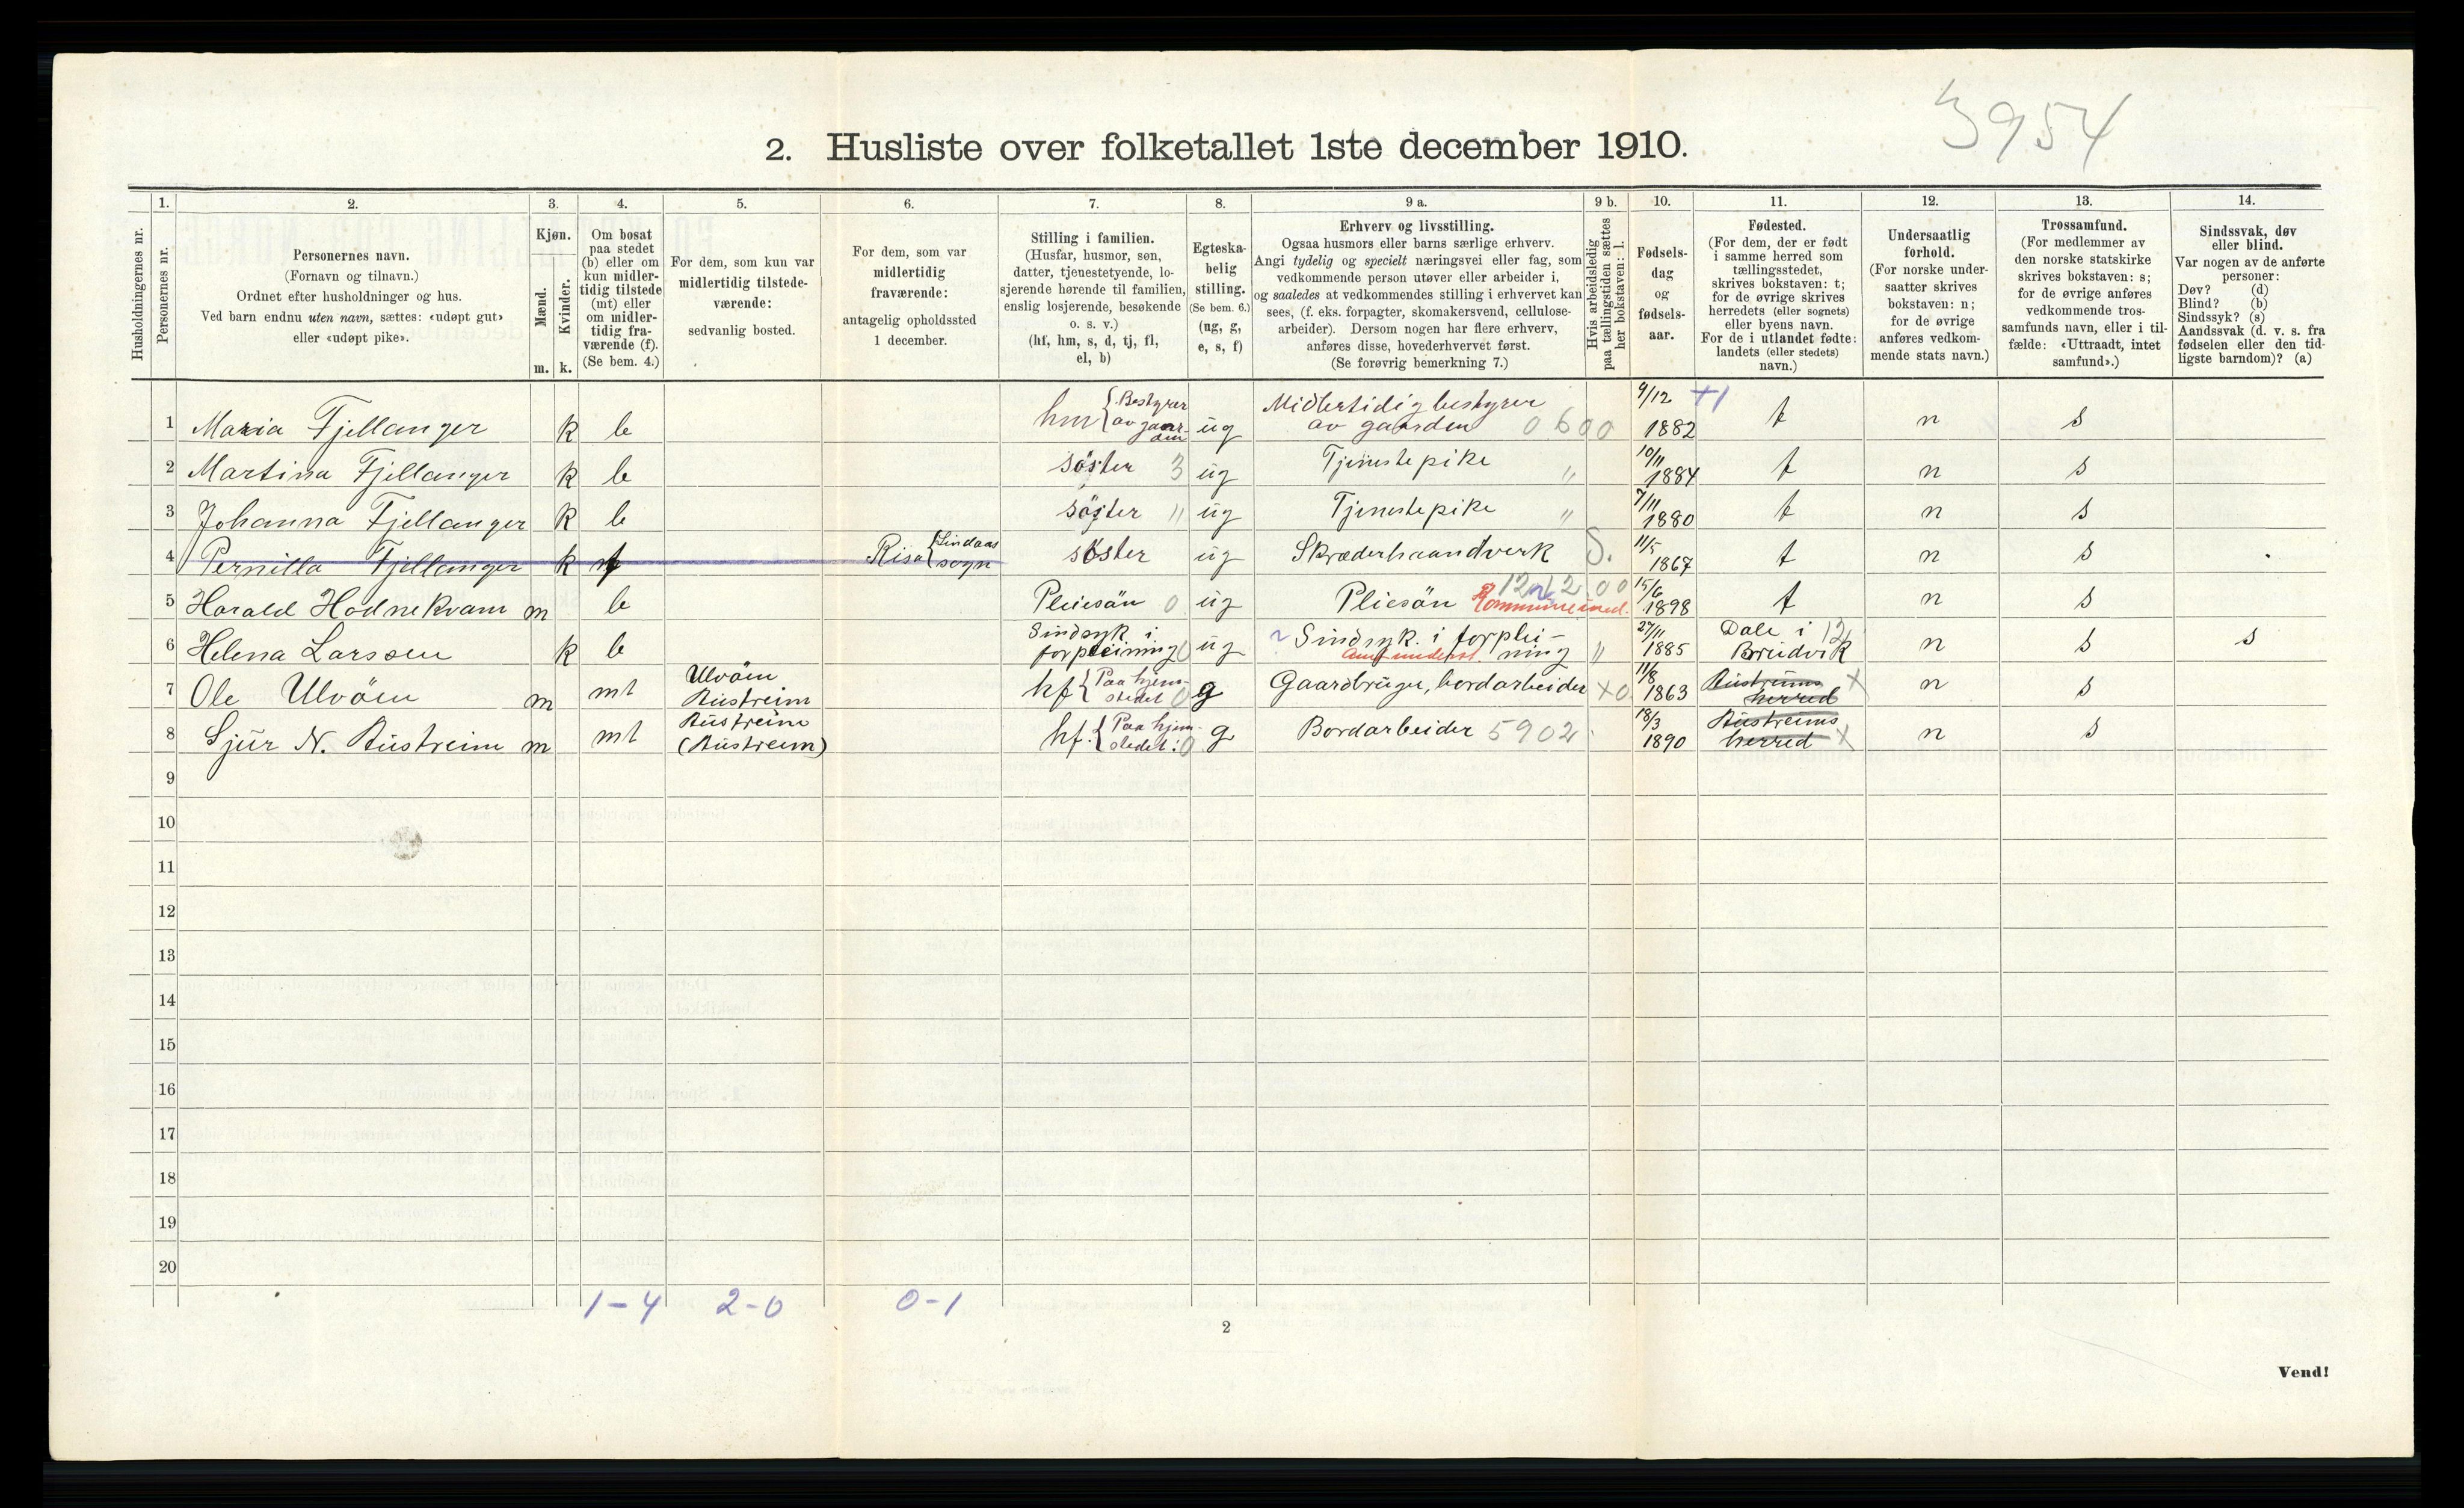 3954
2. Husliste over folketallet 1ste december 1910.
1. 2. 3. 4. 5. 6. 7. 8. 9 a. 9 b. 10. 11. 12. 13. 14.
Husholdningernes nr.
Personernes nr.
Personernes navn.
(Fornavn og tilnavn.)
Ordnet efter husholdninger og hus.
Ved barn endnu uten navn, sættes: «udøpt gut»
eller «udøpt pike».
Kjøn.
Mænd.
Kvinder.
m. k.
Om bosat
paa stedet
(b) eller om
kun midler-
tidig tilstede
(mt) eller
om midler-
tidig fra-
værende (f).
(Se bem. 4.)
For dem, som kun var
midlertidig tilstede-
værende:
sedvanlig bosted.
For dem, som var
midlertidig
fraværende:
antagelig opholdssted
1 december.
Stilling i familien.
(Husfar, husmor, søn,
datter, tjenestetyende, lo-
sjerende hørende til familien,
enslig losjerende, besøkende
o. s. v.)
(hf, hm, s, d, tj, fl,
el, b)
Egteska-
belig
stilling.
(Se bem. 6.)
(ug, g,
e, s, f)
Erhverv og livsstilling.
Ogsaa husmors eller barns særlige erhverv.
Angi tydelig og specielt næringsvei eller fag, som
vedkommende person utøver eller arbeider i,
og saaledes at vedkommendes stilling i erhvervet kan
sees, (f. eks. forpagter, skomakersvend, cellulose-
arbeider). Dersom nogen har flere erhverv,
anføres disse, hovederhvervet først.
(Se forøvrig bemerkning 7.)
Hvis arbeidsledig
paa tællingstiden sættes
her bokstaven: l.
Fødsels-
dag
og
fødsels-
aar.
Fødested.
(For dem, der er født
i samme herred som
tællingsstedet,
skrives bokstaven: t;
for de øvrige skrives
herredets (eller sognets)
eller byens navn.
For de i utlandet fødte:
landets (eller stedets)
navn.)
Undersaatlig
forhold.
(For norske under-
saatter skrives
bokstaven: n;
for de øvrige
anføres vedkom-
mende stats navn.)
Trossamfund.
(For medlemmer av
den norske statskirke
skrives bokstaven: s;
for de øvrige anføres
vedkommende tros-
samfunds navn, eller i til-
fælde: «Uttraadt, intet
samfund».)
Sindssvak, døv
eller blind.
Var nogen av de anførte
personer:
Døv? (d)
Blind? (b)
Sindssyk? (s)
Aandssvak (d. v. s. fra
fødselen eller den tid-
ligste barndom)? (a)
1 Maria Fjellanger k b hm {Bestyrer av gaarden ug Midlertidig bestyrer av gaarden 0600 9/12 1882 t n s
2 Martina Fjellanger k b søster 3 ug Tjenestepike " 10/11 1884 t n s
3 Johanna Fjellanger k b søster " ug Tjenestepike " 7/11 1880 t n s
4 Pernilla Fjellanger k f Risa {Lindaas sogn søster ug Skræderhaandverk S. 11/5 1867 t n s
5 Harald Hodnekvam m b Pleiesön 0 ug Pliesön 15/6 1898 t n s
6 Helena Larssen k b Sindsyk i forpleining 0 ug Sindsyk. i forplei-ning " 27/11 1885 Dale i Brudvik 12 n s s
7 Ole Ulvöen m mt Ulvöen Austreim hf {Paa hjem-stedet 0 g Gaardbruger, bordarbeider x0 11/8 1863 Austreims herred x n s
8 Sjur N. Austreim m mt Austreim (Austreim) hf. {Paa hjem-stedet: 0 g Bordarbeider 5902 18/3 1890 Austreims herred x n s
9
10
11
12
13
14
15
16
17
18
19
20
1-4 2-0 0-1
2
Vend!